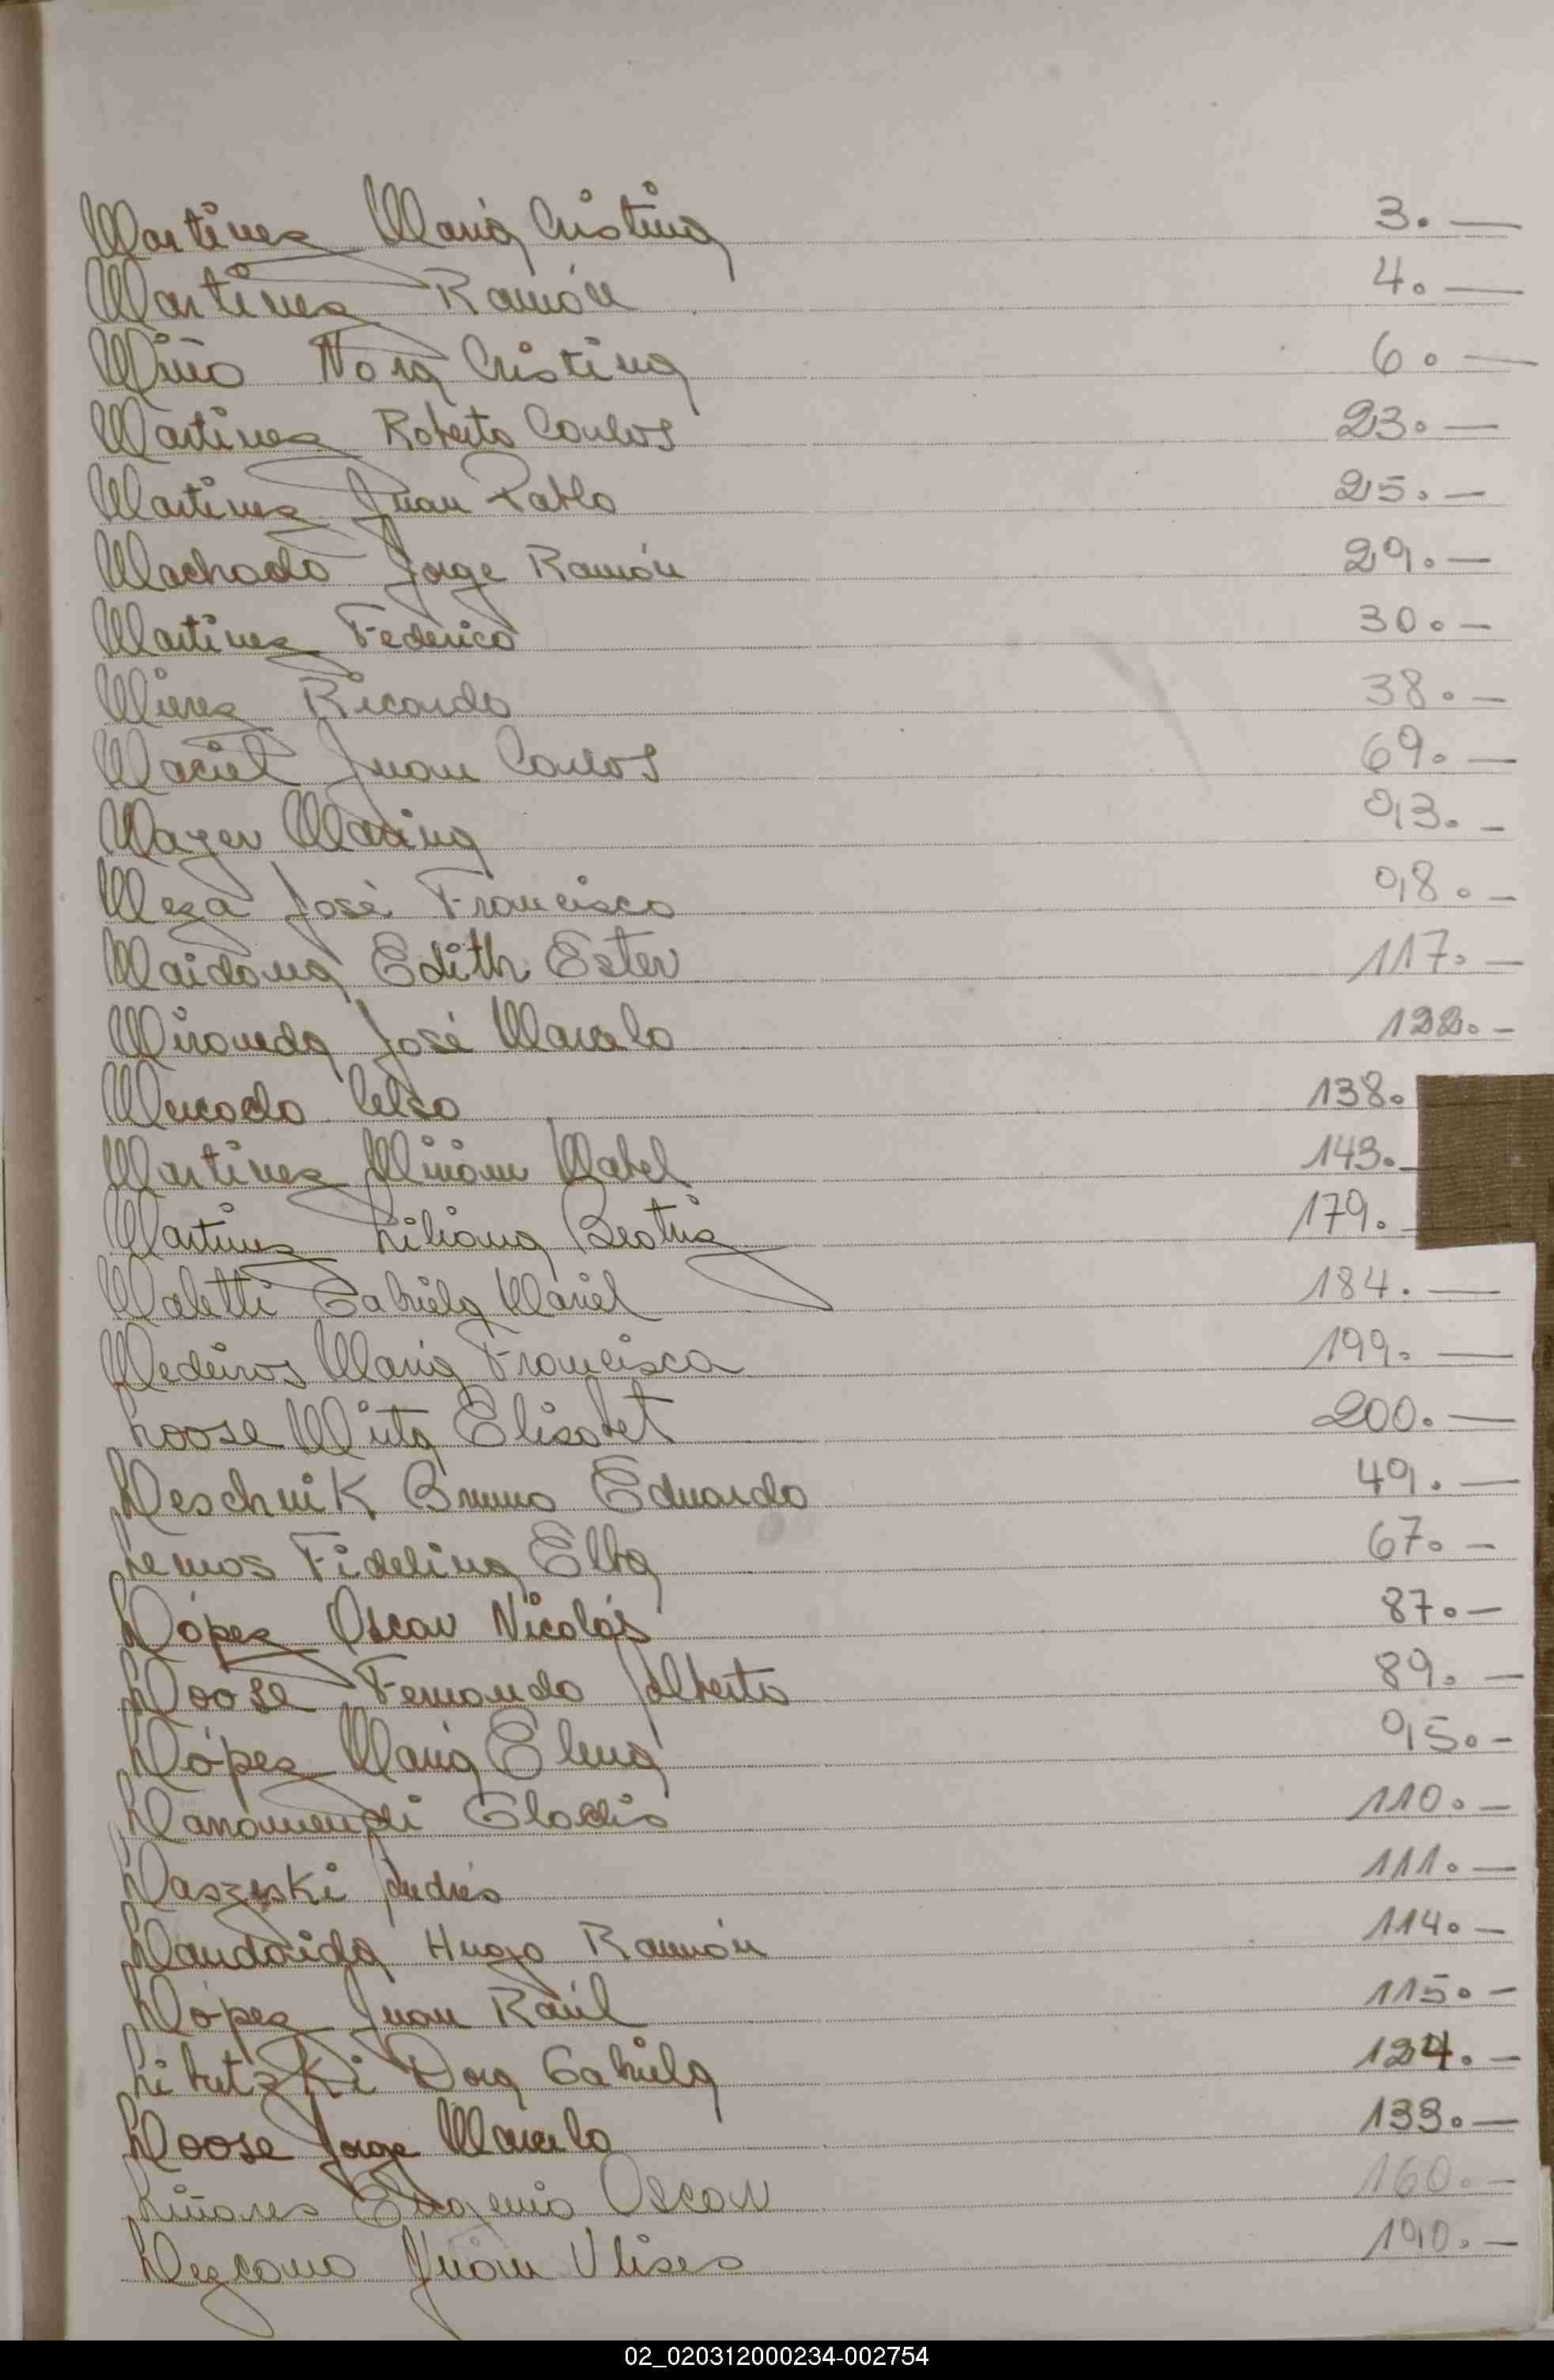 Martinez María Cristina 3.—
Martinez Ramón 4.—
Miño Nora Cristina 6.—
Martinez Roberto Carlos 23.—
Martinez Juan Pablo 25.—
Machado Jorge Ramón 29.—
Martinez Federico 30.—
Mierez Ricardo 38.—
Maciel Juan Carlos 69.—
Mayer Marina 93.—
Meza José Francisco 98.—
Maidana Edith Ester 117.—
Miranda José Marcelo 122.—
Mercado Celso 138.
Martinez Miriam Mabel 143.—
Martinez Liliana Beatriz 179.—
Maletti Gabriela Mariel 184.—
Medeiros María Francisca 199.—
Loose Mirta Elisabet 200.—
Leschnik Bruno Eduardo 49.—
Lemos Fidelina Elba 67.—
López Oscar Nicolás 87.—
Loose Fernando Alberto 89.—
López María Elena 95.—
Larramendi Gladis 110.—
Laszeski Andrés 111.—
Landaida Hugo Ramón 114.—
López Juan Raúl 115.—
Libutzki Dora Gabriela 124.—
Loose Jorge Marcelo 133.—
Liñares Eugenio Oscar 160.—
Lezcano Juan Ulises 190.—
02_020312000234-002754